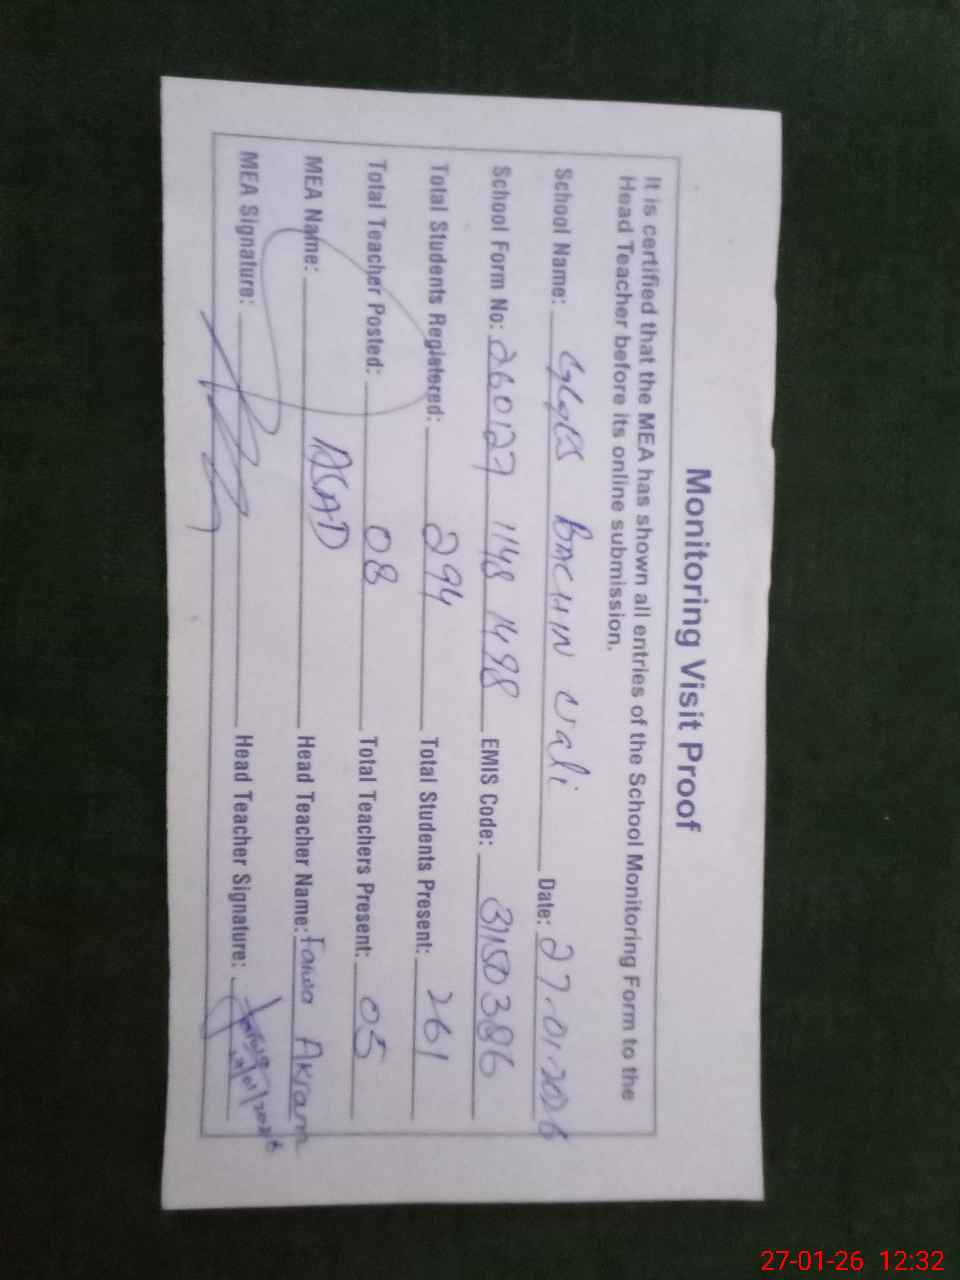 Monitoring Visit Proof
It is certified that the MEA has shown all entries of the School Monitoring Form to the
Head Teacher before its online submission.
School Name: BACHIN Wali Date: 27-01-2026
School Form No: 260127 1148 1498 EMIS Code: 31150386
Total Students Registered: 294 Total Students Present: 261
Total Teacher Posted: 08 Total Teachers Present: 05
MEA Name: ASAD Head Teacher Name: Akram
MEA Signature: Head Teacher Signature:
27-01-26 12:32